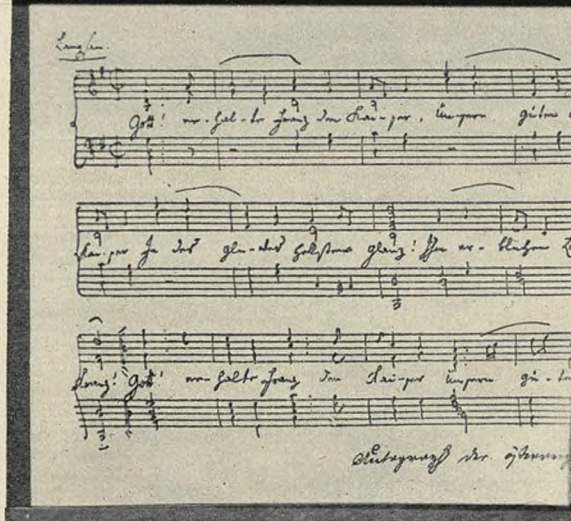 Langsam.
Gott! er-hal-te Franz den Kai-ser, Unsern guten
Kai-ser In des glü-ckes hellsten glanz! Ihm er-blühen
Franz! Gott! er-halte Franz den Kai-ser Unsern gu-
Autograph der österrei